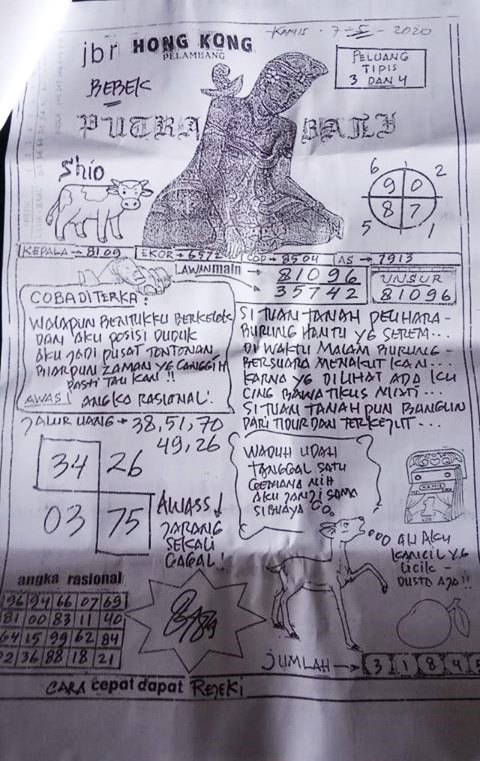 KAMIS . 7-5-2020
jbr HONG KONG
PELAMBANG
PELUANG
TIPIS
3 DAN 4
BEBEK
PUTRA BALI
Shio
6 2
9 0
8 7
5 1
KEPALA → 8109 EKOR → 6572 COP → 8504 AS → 7913
LAWAN main → 81096
→ 35742
UNSUR
81096
COBA DITERKA:
WALAPUN BENTUKKU BERKELOK
DAN AKU POSISI DUDUK
AKU JADI PUSAT TONTONAN
BIARPUN ZAMAN YG CANGGIH
PASTI TAU KAN !!
AWAS! ANGKA RASIONAL!
SI TUAN TANAH PELIHARA-
BURUNG HANTU YG SEREM...
DI WAKTU MALAM BURUNG-
BERSUARA MENAKUT KAN...
KARNA YG DILIHAT ADA KU
CING BAWA TIKUS MATI...
SI TUAN TANAH PUN BANGUN
DARI TIDUR DAN TERKEJUT...
JALUR UANG → 38,51,70
49,26
34 26
03 75
AWASS
JARANG
SEKALI
GAGAL!
WADUH UDAH
TANGGAL SATU
GEMANA NIH
AKU JANJI SAMA
SI BUAYA
KAMIS
1
AH AKU
KANCIL YG
LICIK-
DUSTO AJA!!
angka rasional
96 94 66 07 69
81 00 83 11 40
64 15 99 62 84
02 36 88 18 21
JUMLAH → 3 1 8 9 5
CARA cepat dapat REJEKI